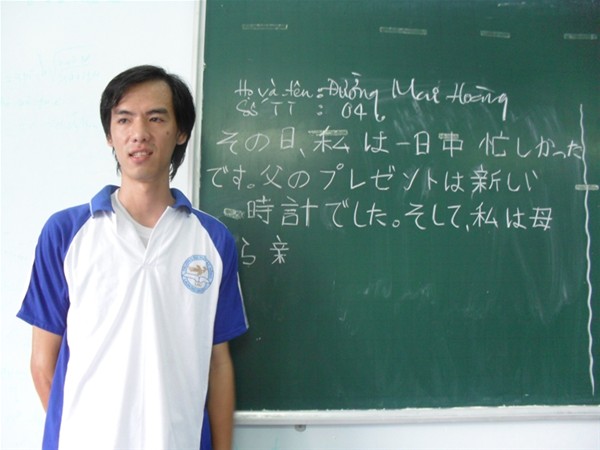 Họ và tên : Đường Mai Hoàng
Số TT : 046
その日、私は一日中忙しかった
です。父のプレゼントは新しい
時計でした。そして、私は母
ら新